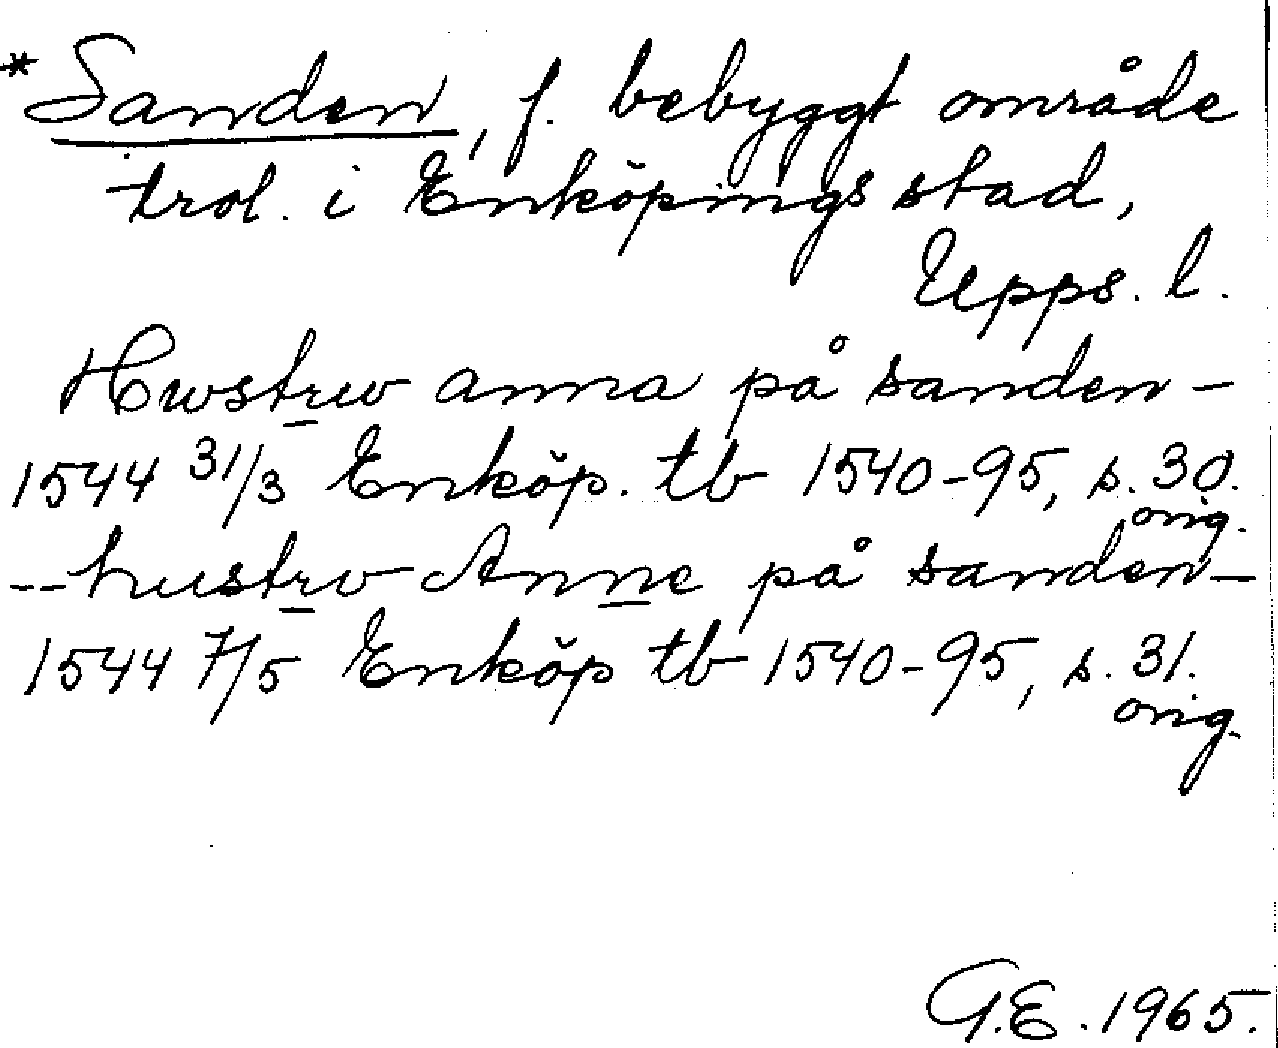 * Sanden, f. bebyggt område
trol. i Enköpings stad,
Upps. l.
Hwstrw anna på sanden -
1544 31/3 Enköp. tb 1540-95, s. 30.
orig.
-- hustrv Anne på sanden -
1544 7/5 Enköp tb 1540-95, s. 31.
orig.
G.E. 1965.